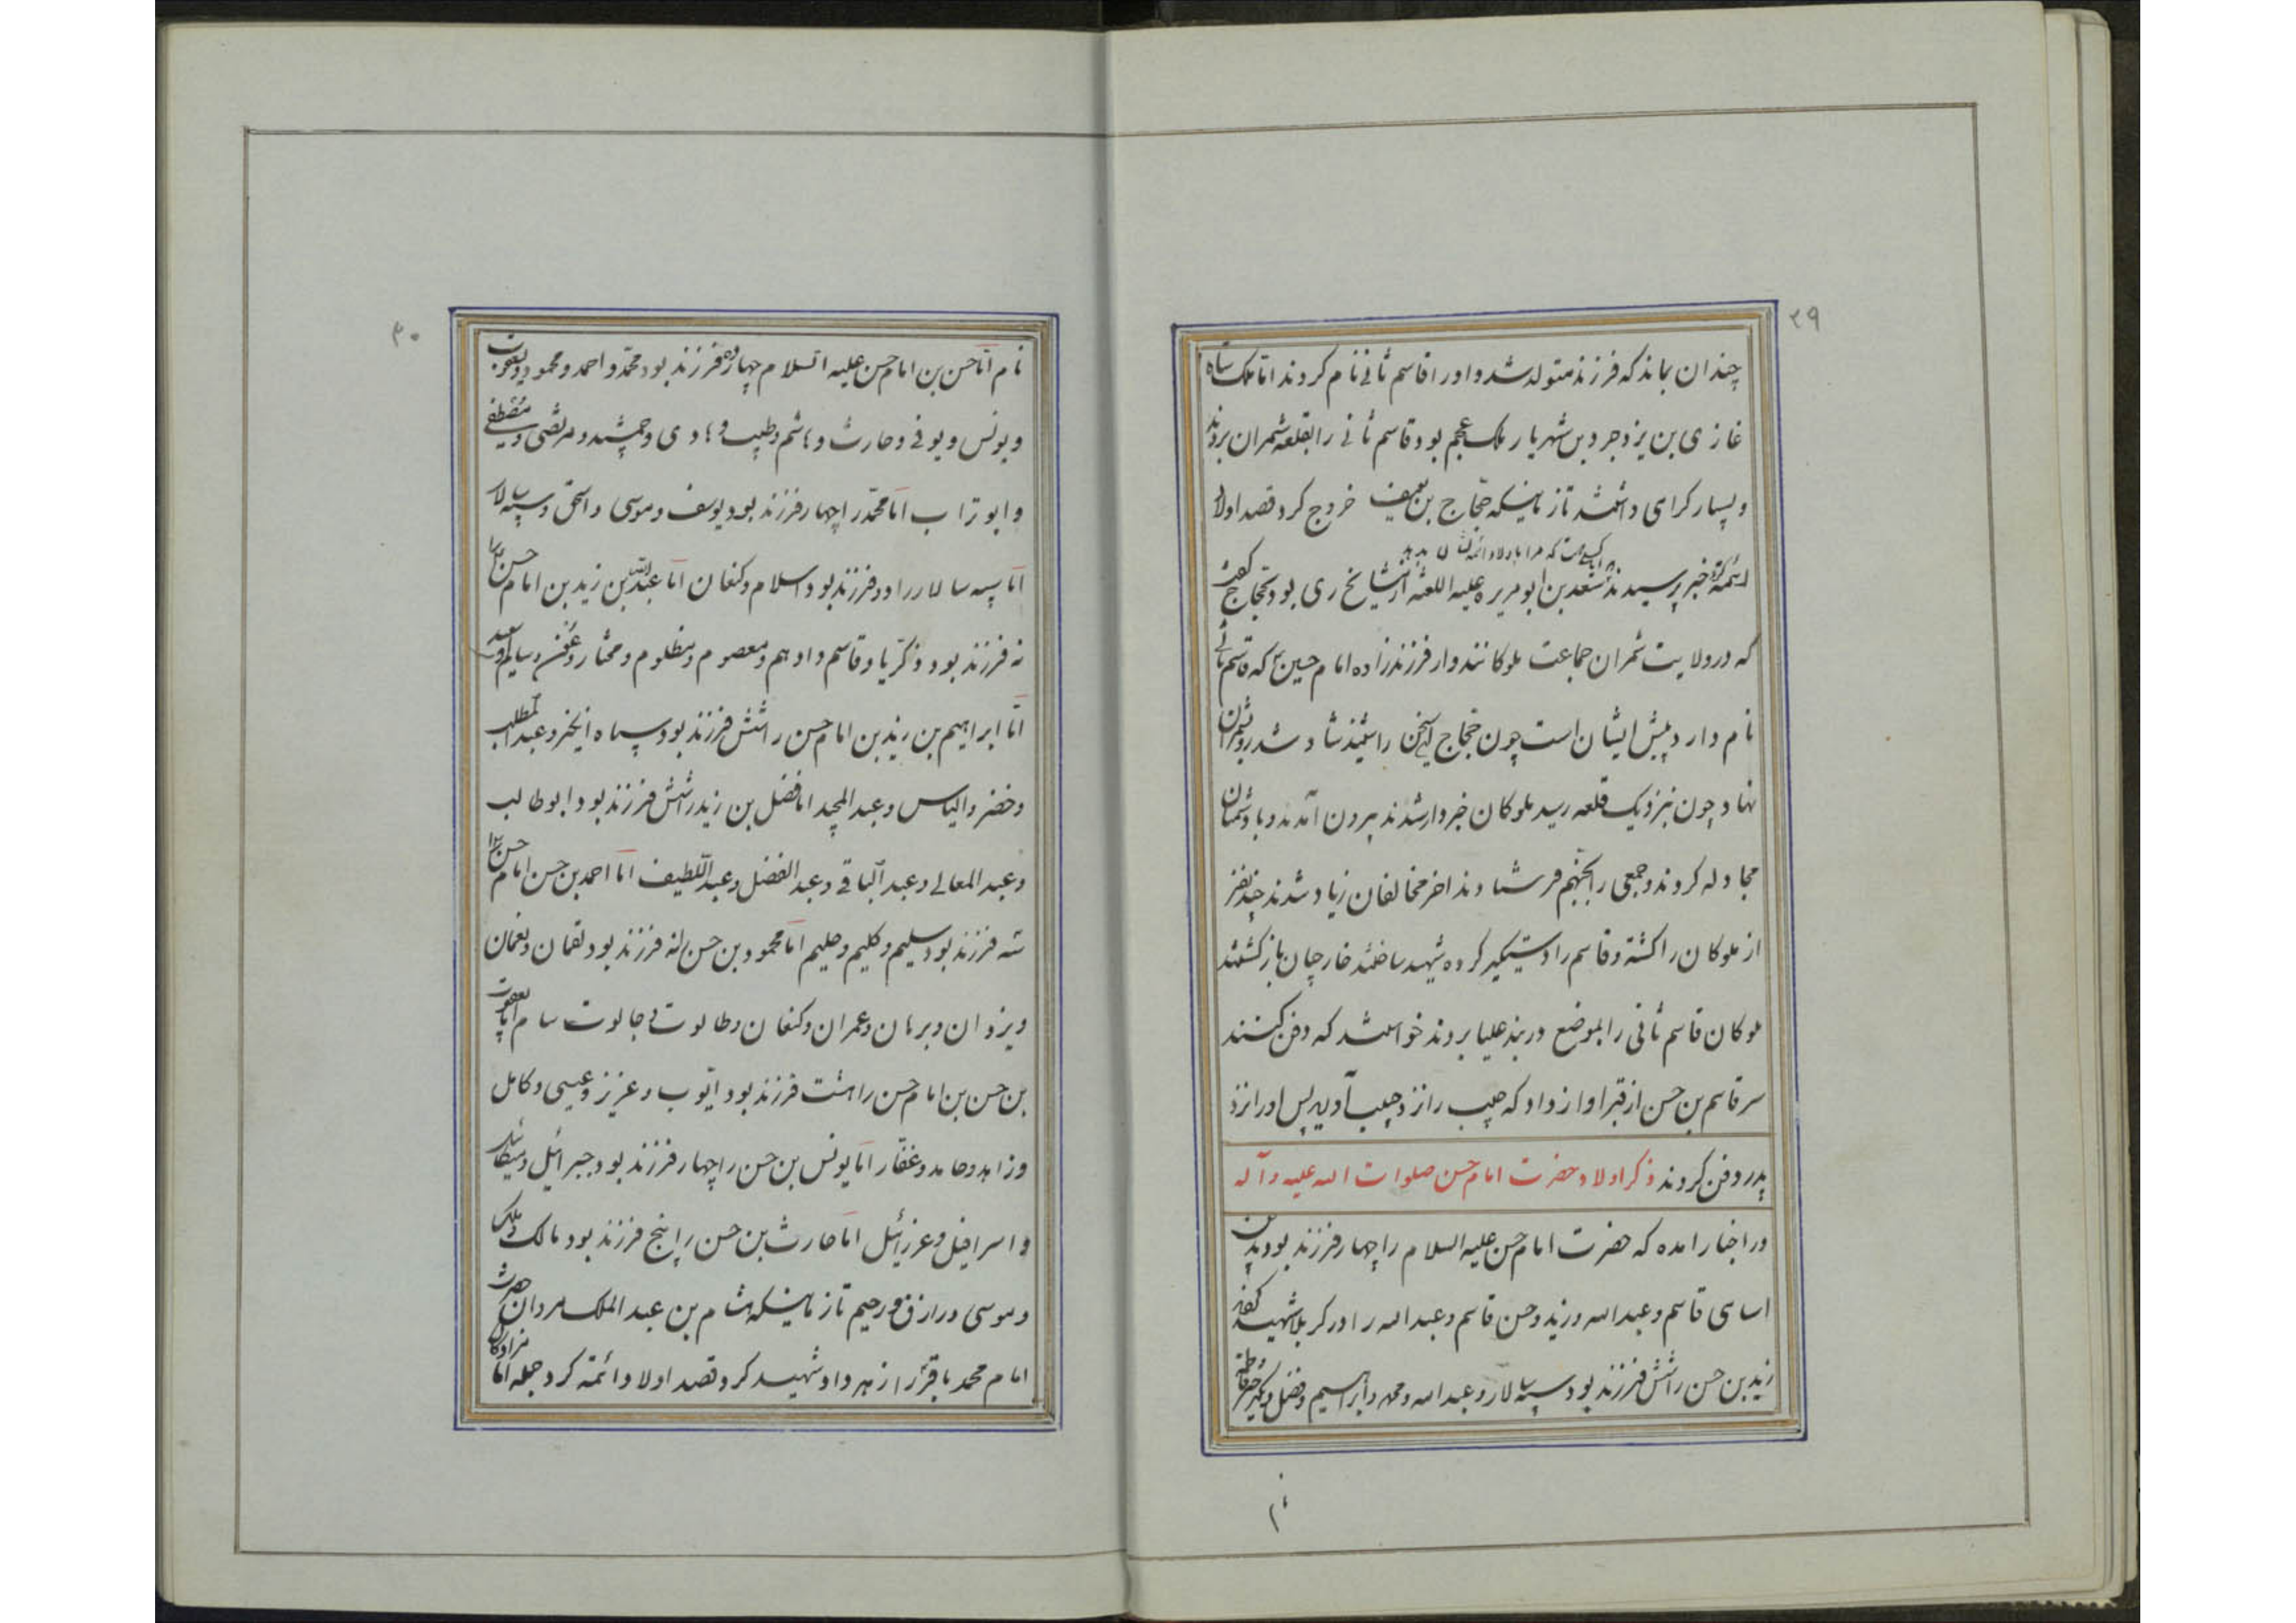 ۲۹
چندان بماند که فرزند متولد شد و او را قاسم ثانی نام کردند اما ملک شاه
غازی بن یزدجرد بن شهریار ملک عجم بود قاسم ثانی را بقلعه شمران بردند
و بسیار کرامی داشتند تا زمانیکه حجاج بن یوسف خروج کرد و قصد اولاد
کسی هست که مرا باولاد ائمه نشان بدهد
ائمه کرد خبر پرسیدند سعد بن ابو مریره علیه اللعنه از مشایخ ری بود بحجاج گفت
که در ولایت شمران جماعت ملوکانند و از فرزندزاده امام حسین که قاسم ثانی
نام دارد پیش ایشان است چون حجاج این سخن را شنید شاد شد رو بشمران
نهاد چون نزدیک قلعه رسید ملوکان خبردار شدند بیرون آمدند و با دشمنان
مجادله کردند و جمعی را بجهنم فرستادند اخر مخالفان زیاد شدند چند نفر
از ملوکان را کشته و قاسم را دستیگیر کرده شهید ساختند خارجیان بازگشتند
ملوکان قاسم ثانی را بموضع دربند علیا بردند خواستند که دفن کنند
سر قاسم بن حسن از قبر اواز داد که حبیب را نزد حبیب آورید پس او را نزد
پدر دفن کردند ذکر اولاد حضرت امام حسن صلوات الله علیه و آله
در اخبار امده که حضرت امام حسن علیه السلام را چهار فرزند بود بدین
اسامی قاسم و عبدالله و زید و حسن قاسم و عبدالله را در کربلا شهید کردند
زید بن حسن را شش فرزند بود سپه سالار و عبدالله و محمد و ابراهیم و فضل و
نام
۳۰
نام اما حسن بن امام حسن علیه السلام چهارده فرزند بود محمد و احمد و محمود و یعقوب
و یونس و یوفی و حارث و هاشم و طیب و هادی و جمشید و مرتضی و مصطفی
و ابو تراب اما محمد را چهار فرزند بود یوسف و موسی و اسحق و سپه سالار
اما سپه سالار را دو فرزند بود اسلام و کنعان اما عبدالله بن زید بن امام حسن را
نه فرزند بود ذکریا و قاسم و ادهم و معصوم و مظلوم و مختار و و سالم و سعد
اما ابراهیم بن زید بن امام حسن را شش فرزند بود سیاه و عبدالمطلب
و خضر و الیاس و عبدالمجید اما فضل بن زید را شش فرزند بود ابوطالب
و عبدالمعالی و عبدالباقی و عبدالفضل و عبداللطیف اما احمد بن حسن امام حسن را
سه فرزند بود سلیم و کلیم و حلیم اما محمود بن حسن را نه فرزند بود لقمان و نعمان
و یزدان و برهان و عمران و کنعان و طالوت و جالوت سام اما یعقوب
بن حسن بن امام حسن را هشت فرزند بود ایوب و عزیز و عیسی و کامل
و زاهد و حامد و غفار اما یونس بن حسن را چهار فرزند بود جبرائیل و میکائیل
و اسرافیل و عزرائیل اما حارث بن حسن را پنج فرزند بود مالک و ملک
و موسی و رازق و رحیم تا زمانیکه هشام بن عبدالملک مروان حضرت
امام محمد باقر را زهر داد و شهید کرد و قصد اولاد ائمه کرد جمله